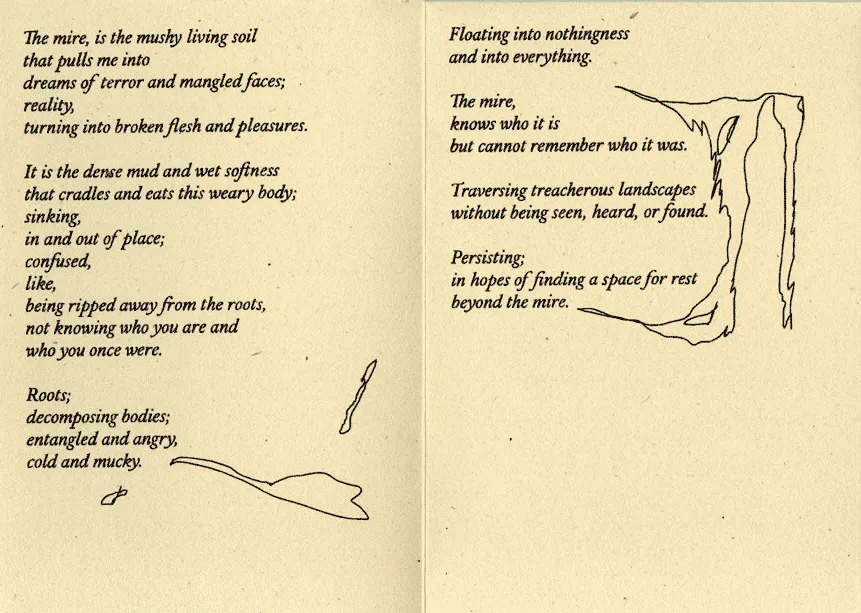 The mire, is the mushy living soil
that pulls me into
dreams of terror and mangled faces;
reality,
turning into broken flesh and pleasures.
It is the dense mud and wet softness
that cradles and eats this weary body;
sinking,
in and out of place;
confused,
like,
being ripped away from the roots,
not knowing who you are and
who you once were.
Roots;
decomposing bodies;
entangled and angry,
cold and mucky.
Floating into nothingness
and into everything.
The mire,
knows who it is
but cannot remember who it was.
Traversing treacherous landscapes
without being seen, heard, or found.
Persisting;
in hopes of finding a space for rest
beyond the mire.